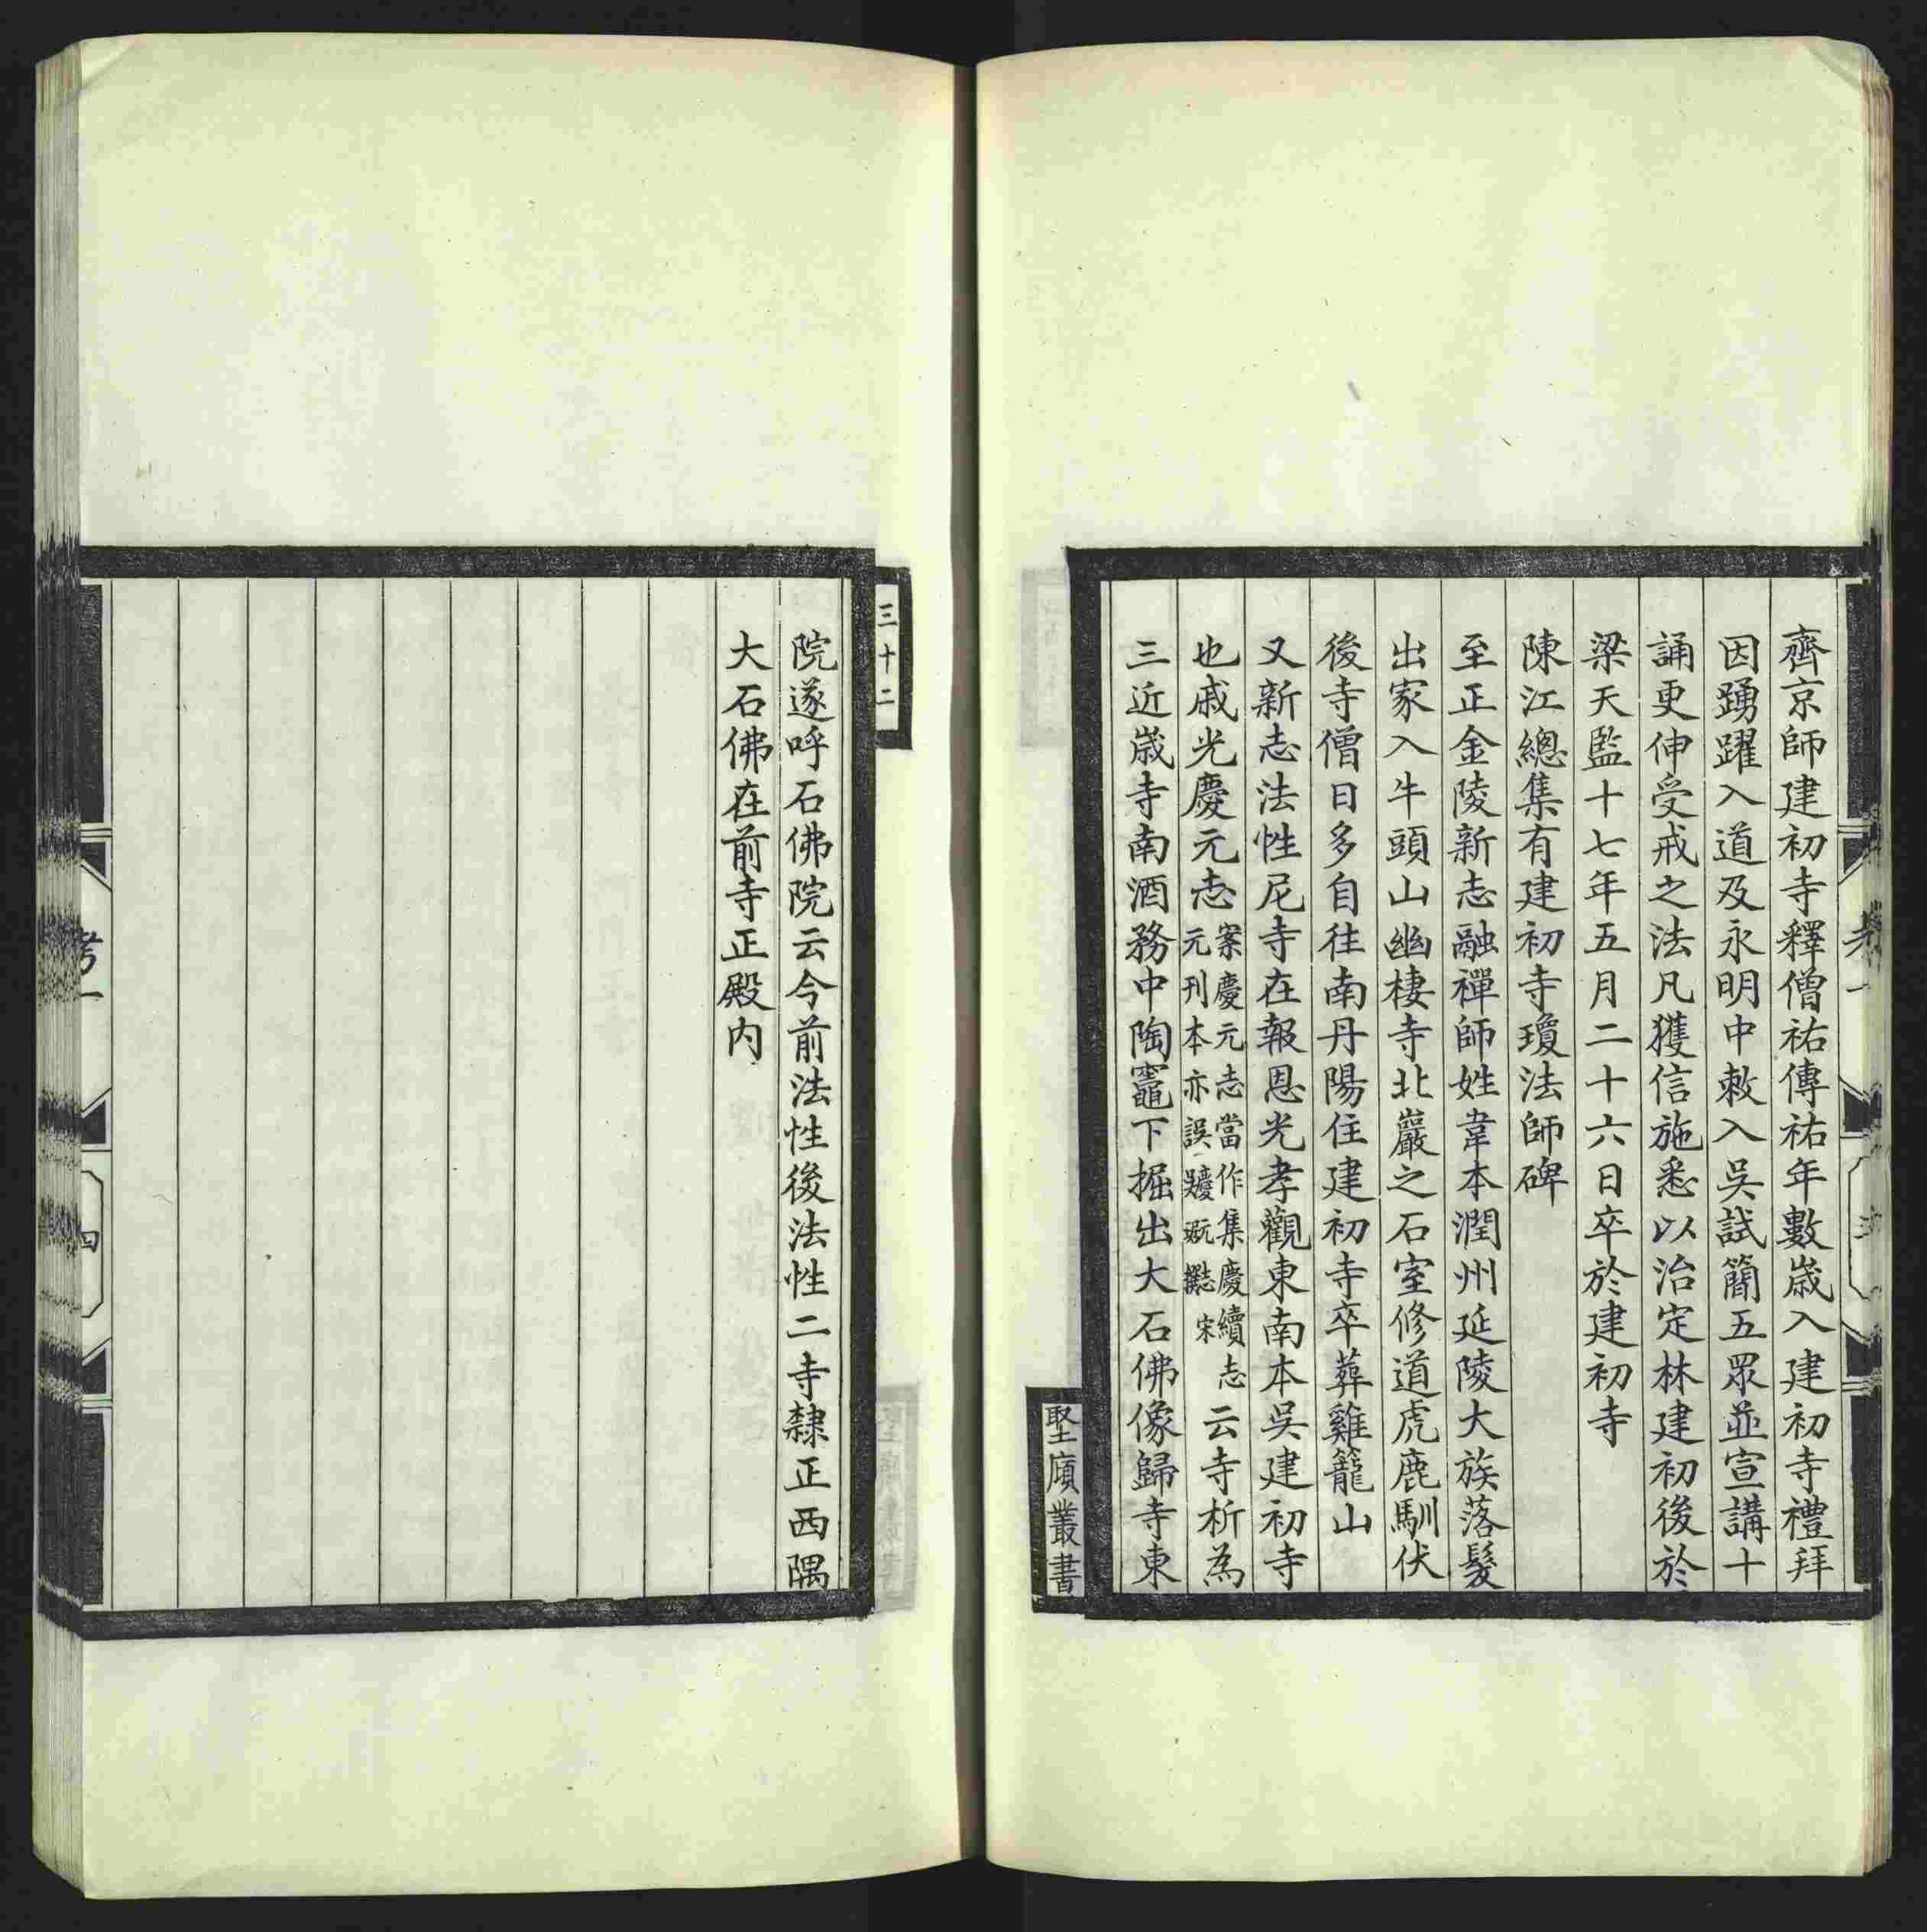 齊京師建初寺釋僧祐傳祐年數歲入建初寺禮拜
因踴躍入道及永明中敕入吳試簡五眾並宣講十
誦更伸受戒之法凡獲信施悉以治定林建初後於
梁天監十七年五月二十六日卒於建初寺
陳江總集有建初寺瓊法師碑
至正金陵新志融禪師姓韋本潤州延陵大族落髮
出家入牛頭山幽棲寺北巖之石室修道虎鹿馴伏
後寺僧日多自往南丹陽住建初寺卒葬雞籠山
又新志法性尼寺在報恩光孝觀東南本吳建初寺
也戚光慶元志
案慶元志當作集慶續志
元刊本亦誤
宋
云寺析為
三近歲寺南酒務中陶竈下掘出大石佛像歸寺東
堅廎叢書
三十二
院遂呼石佛院云今前法性後法性二寺隸正西隅
大石佛在前寺正殿内
考一
四